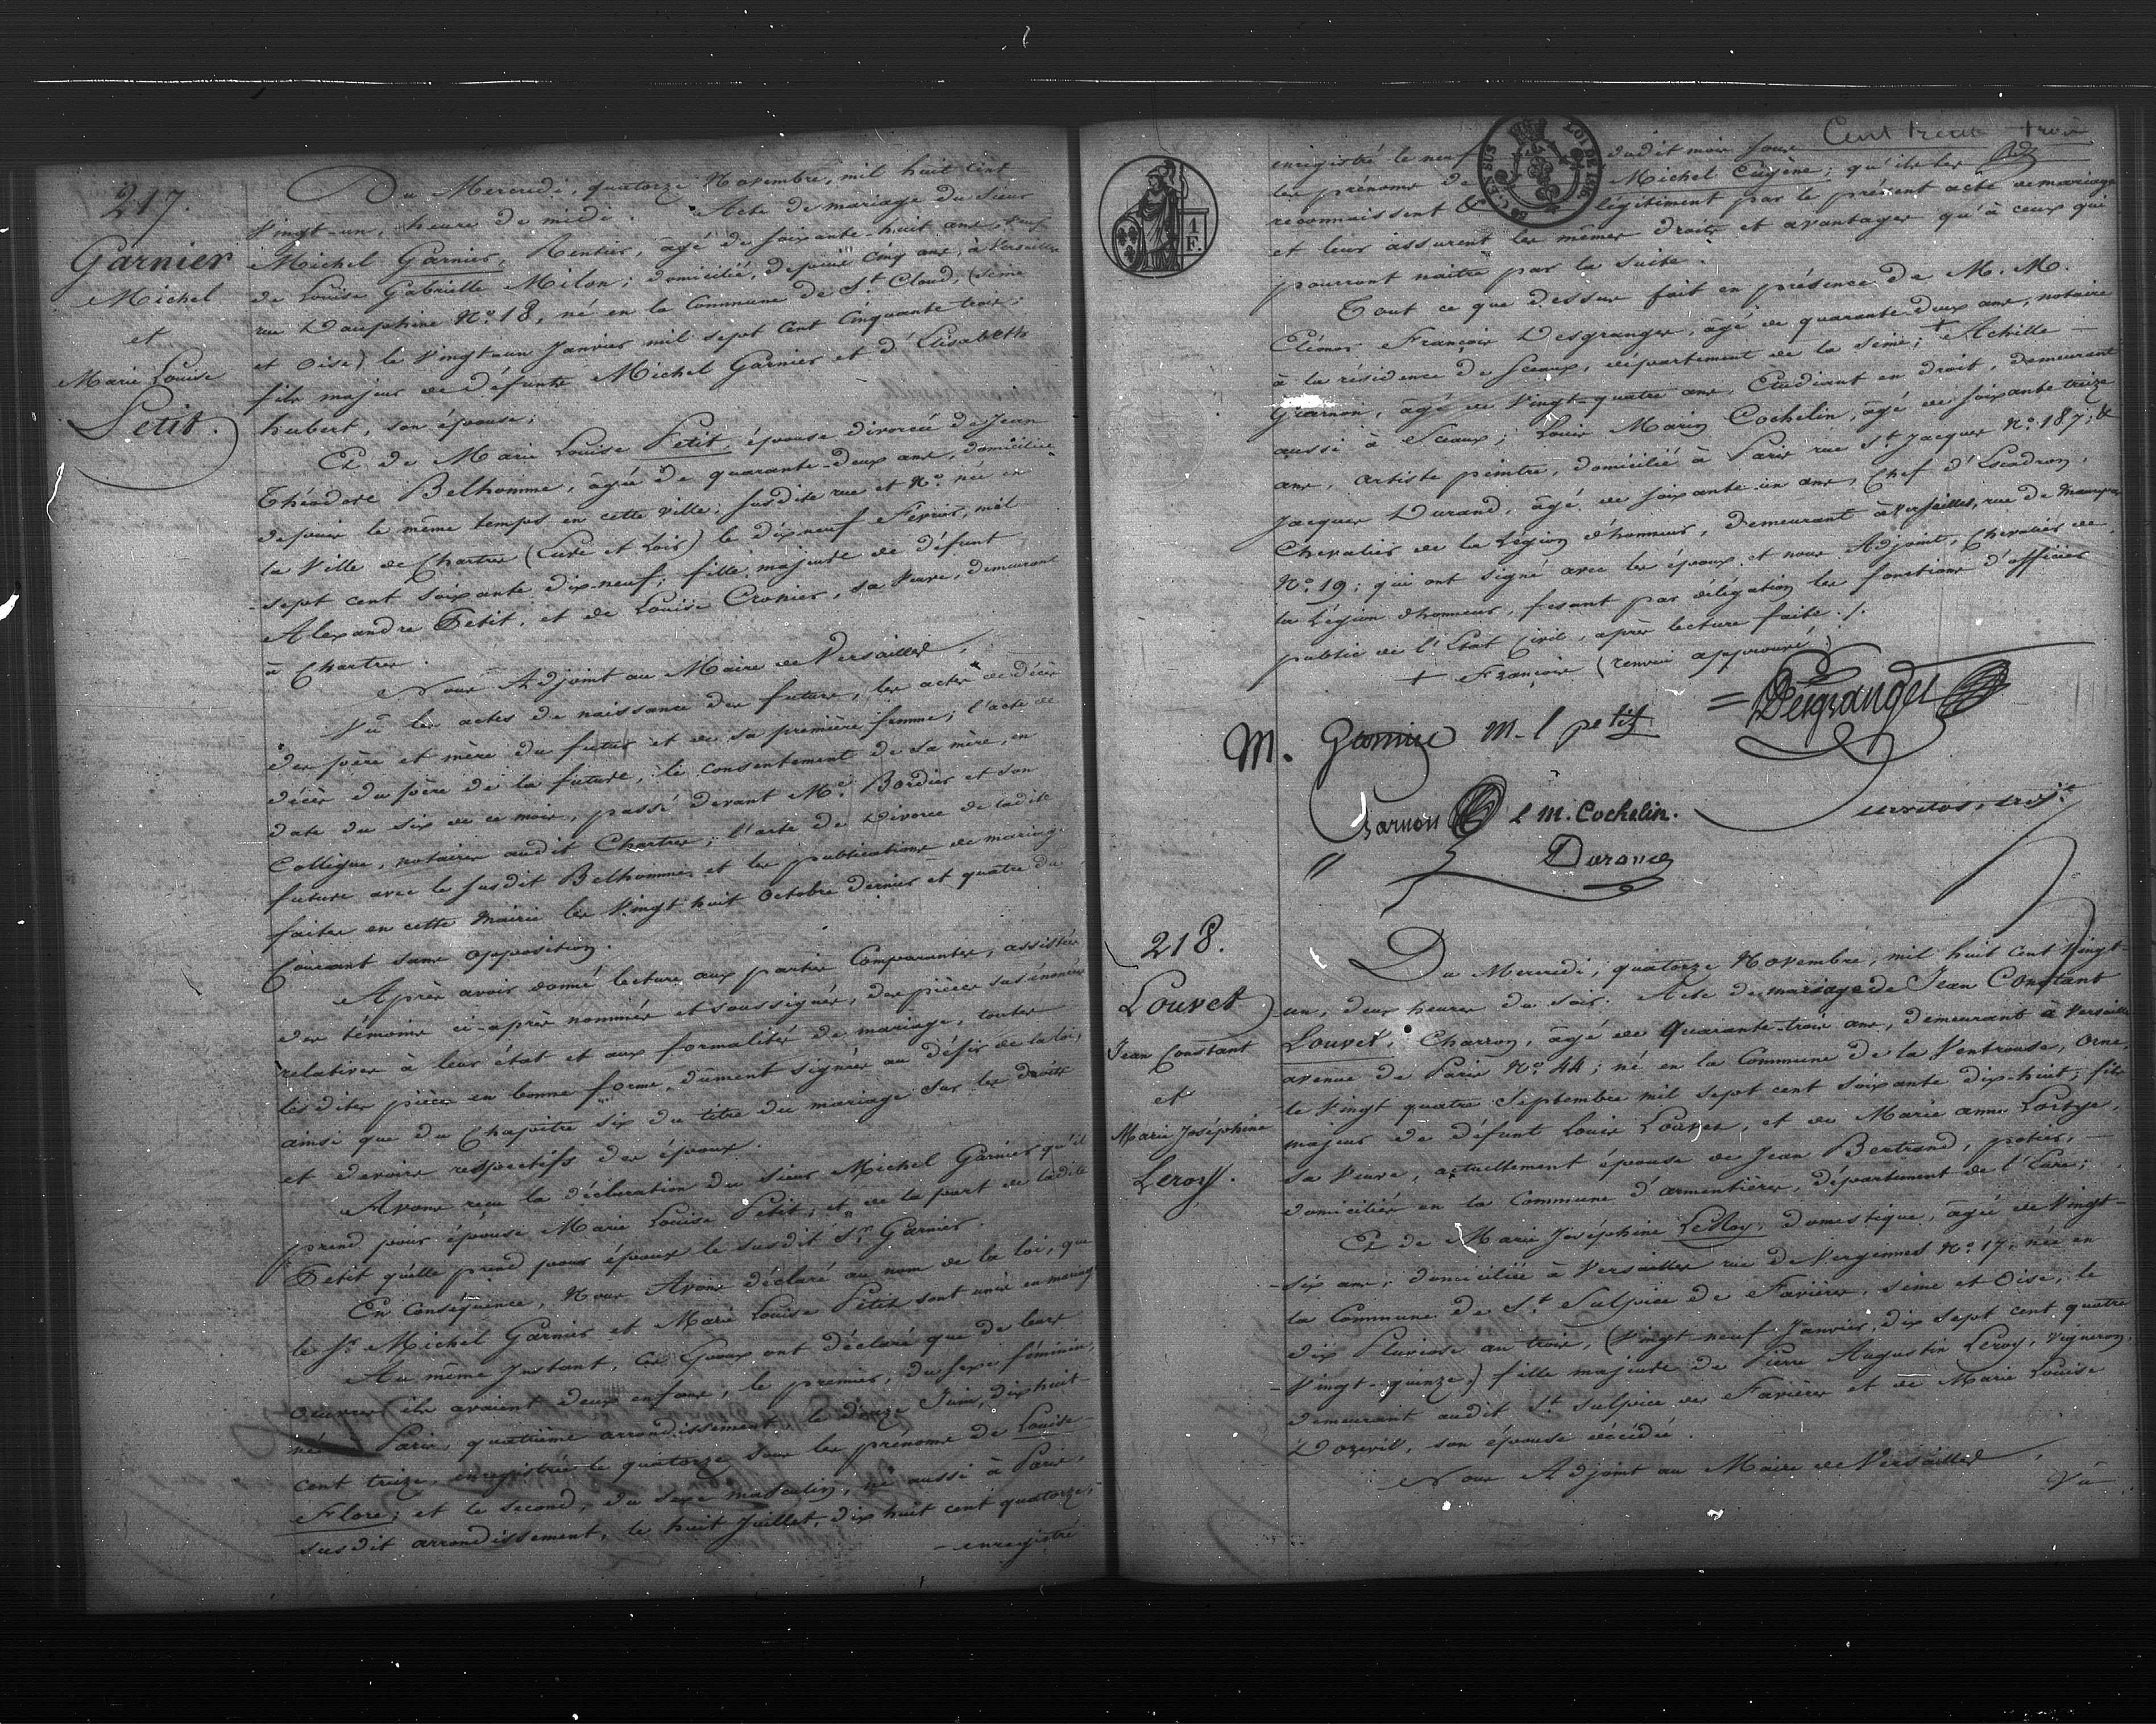 217.
Garnier
Michel
et
Marie Louise
Petit.
Du Mercredi, quatorze Novembre, mil huit Cent
Vingt-un, heure de midi. Acte de mariage du Sieur
Michel Garnier, Rentier, âgé de soixante-huit ans, veuf
de Louise Gabrielle Milon; domicilié, depuis cinq ans, à Versailles
rue Dauphine No. 18, né en la Commune de St. Cloud, (Seine
et Oise) le Vingt-un Janvier mil sept Cent Cinquante trois;
fils majeur de défunts Michel Garnier et d'Elisabeth
hubert, son épouse;
Et de Marie Louise Petit, épouse divorcée de Jean
Théodore Belhomme, âgée de quarante-deux ans, domiciliée
depuis le même temps en cette ville, susdite rue et No. née en
la Ville de Chartres (Eure et Loir) le dix neuf Février, mil
sept cent soixante dix-neuf; fille majeure de défunt
Alexandre Petit, et de Louise Cronier, sa Veuve, demeurant
à Chartres.
Nous Adjoint au Maire de Versailles,
Vû les actes de naissance des futurs, les actes de décès
des père et mère du futur et de sa première femme; l'acte de
décès du père de la future, le consentement de sa mère, en
date du six de ce mois, passé devant Me. Bordier et son
Collègue, notaires audit Chartres; l'acte de Divorce de ladite
future avec le susdit Belhomme, et les publications de mariage
faites en cette Mairie les Vingt huit Octobre dernier et quatre du
Courant sans opposition.
Après avoir donné lecture aux parties Comparantes, assistées
des témoins ci-après nommés et soussignés, des pièces susénoncées
relatives à leur état et aux formalités de mariage, toutes
lesdites pièces en bonne forme, dûment signées au désir de la loi,
ainsi que du Chapitre six du titre du mariage sur les droits
et devoirs respectifs des époux.
Avons reçu la déclaration du sieur Michel Garnier qu'il
prend pour épouse Marie Louise Petit, et de la part de ladite
Petit qu'elle prend pour époux le susdit Sr. Garnier.
En Conséquence, Nous Avons déclaré au nom de la loi, que
le Sr. Michel Garnier et Marie Louise Petit sont unis en mariage
Au même Instant, les Epoux ont déclaré que de leurs
œuvres ils avaient deux enfans; le premier, du sexe féminin,
né à Paris, quatrième arrondissement, le douze Juin, dix huit
cent treize, enregistrée le quatorze sous les prénoms de Louise
Flore; et le second, du sexe masculin, né aussi à Paris,
susdit arrondissement, le huit Juillet, dix huit cent quatorze,
enregistré
Cent trente trois
1 F.
enregistré le neuf dudit mois sous
les prénoms de Michel Eugène; qu'ils les
reconnaissent & légitiment par le présent acte de mariage
et leur assurent les mêmes droits et avantages qu'à ceux qui
pourront naitre par la suite.
Tout ce que dessus fait en présence de M. M.
Eléonor François Desgranges, âgé de quarante deux ans, notaire
à la résidence de Sceaux, département de la Seine; + Achille
Garnon, âgé de Vingt-quatre ans Etudiant en droit, demeurant
aussi à Sceaux; Louis Marin Cochelin, âgé de soixante treize
ans, artiste peintre, domicilié à Paris rue St. Jacques No. 187; &
Jacques Durand, âgé de soixante-un ans, Chef d'Escadron,
Chevalier de la Légion d'honneur, demeurant à Versailles, rue de Maurepas
No. 19; qui ont signé avec les époux et nous Adjoint, Chevalier de
la Légion d'honneur, fesant par délégation les fonctions d'officier
public de l'Etat Civil, après lecture faite./.
+ François (renvoi approuvé)
M. Garnier m-l petit Desgranges
Garnon L M. Cochelin.
Durand
218.
Louvet
Jean Constant
et
Marie Joséphine
Leroy.
Du Mercredi, quatorze Novembre, mil huit cent Vingt
un, deux heures du soir. Acte de mariage de Jean Constant
Louvet, Charron, âgé de Quarante-trois ans, demeurant à Versailles
avenue de Paris No. 44; né en la Commune de la Ventrouse, Orne,
le Vingt quatre Septembre mil sept cent soixante dix-huit, fils
majeur de défunt Louis Louvet, et de Marie anne Lortye,
sa Veuve, actuellement épouse de Jean Bertrand, potier,
domiciliés en la Commune d'armentières, département de l'Eure;
Et de Marie Joséphine LeRoy, Domestique, âgée de Vingt-
six ans; domiciliée à Versailles rue de Vergennes No. 17, née en
la Commune de St. Sulpice de Favières, Seine et Oise, le
dix Pluviose an trois, (Vingt-neuf Janvier, dix sept cent quatre
Vingt-quinze) fille majeure de Pierre Augustin Leroy, Vigneron,
demeurant audit St. Sulpice de Favières et de Marie Louise
son épouse décédée.
Nous Adjoint au Maire de Versailles,
Vû